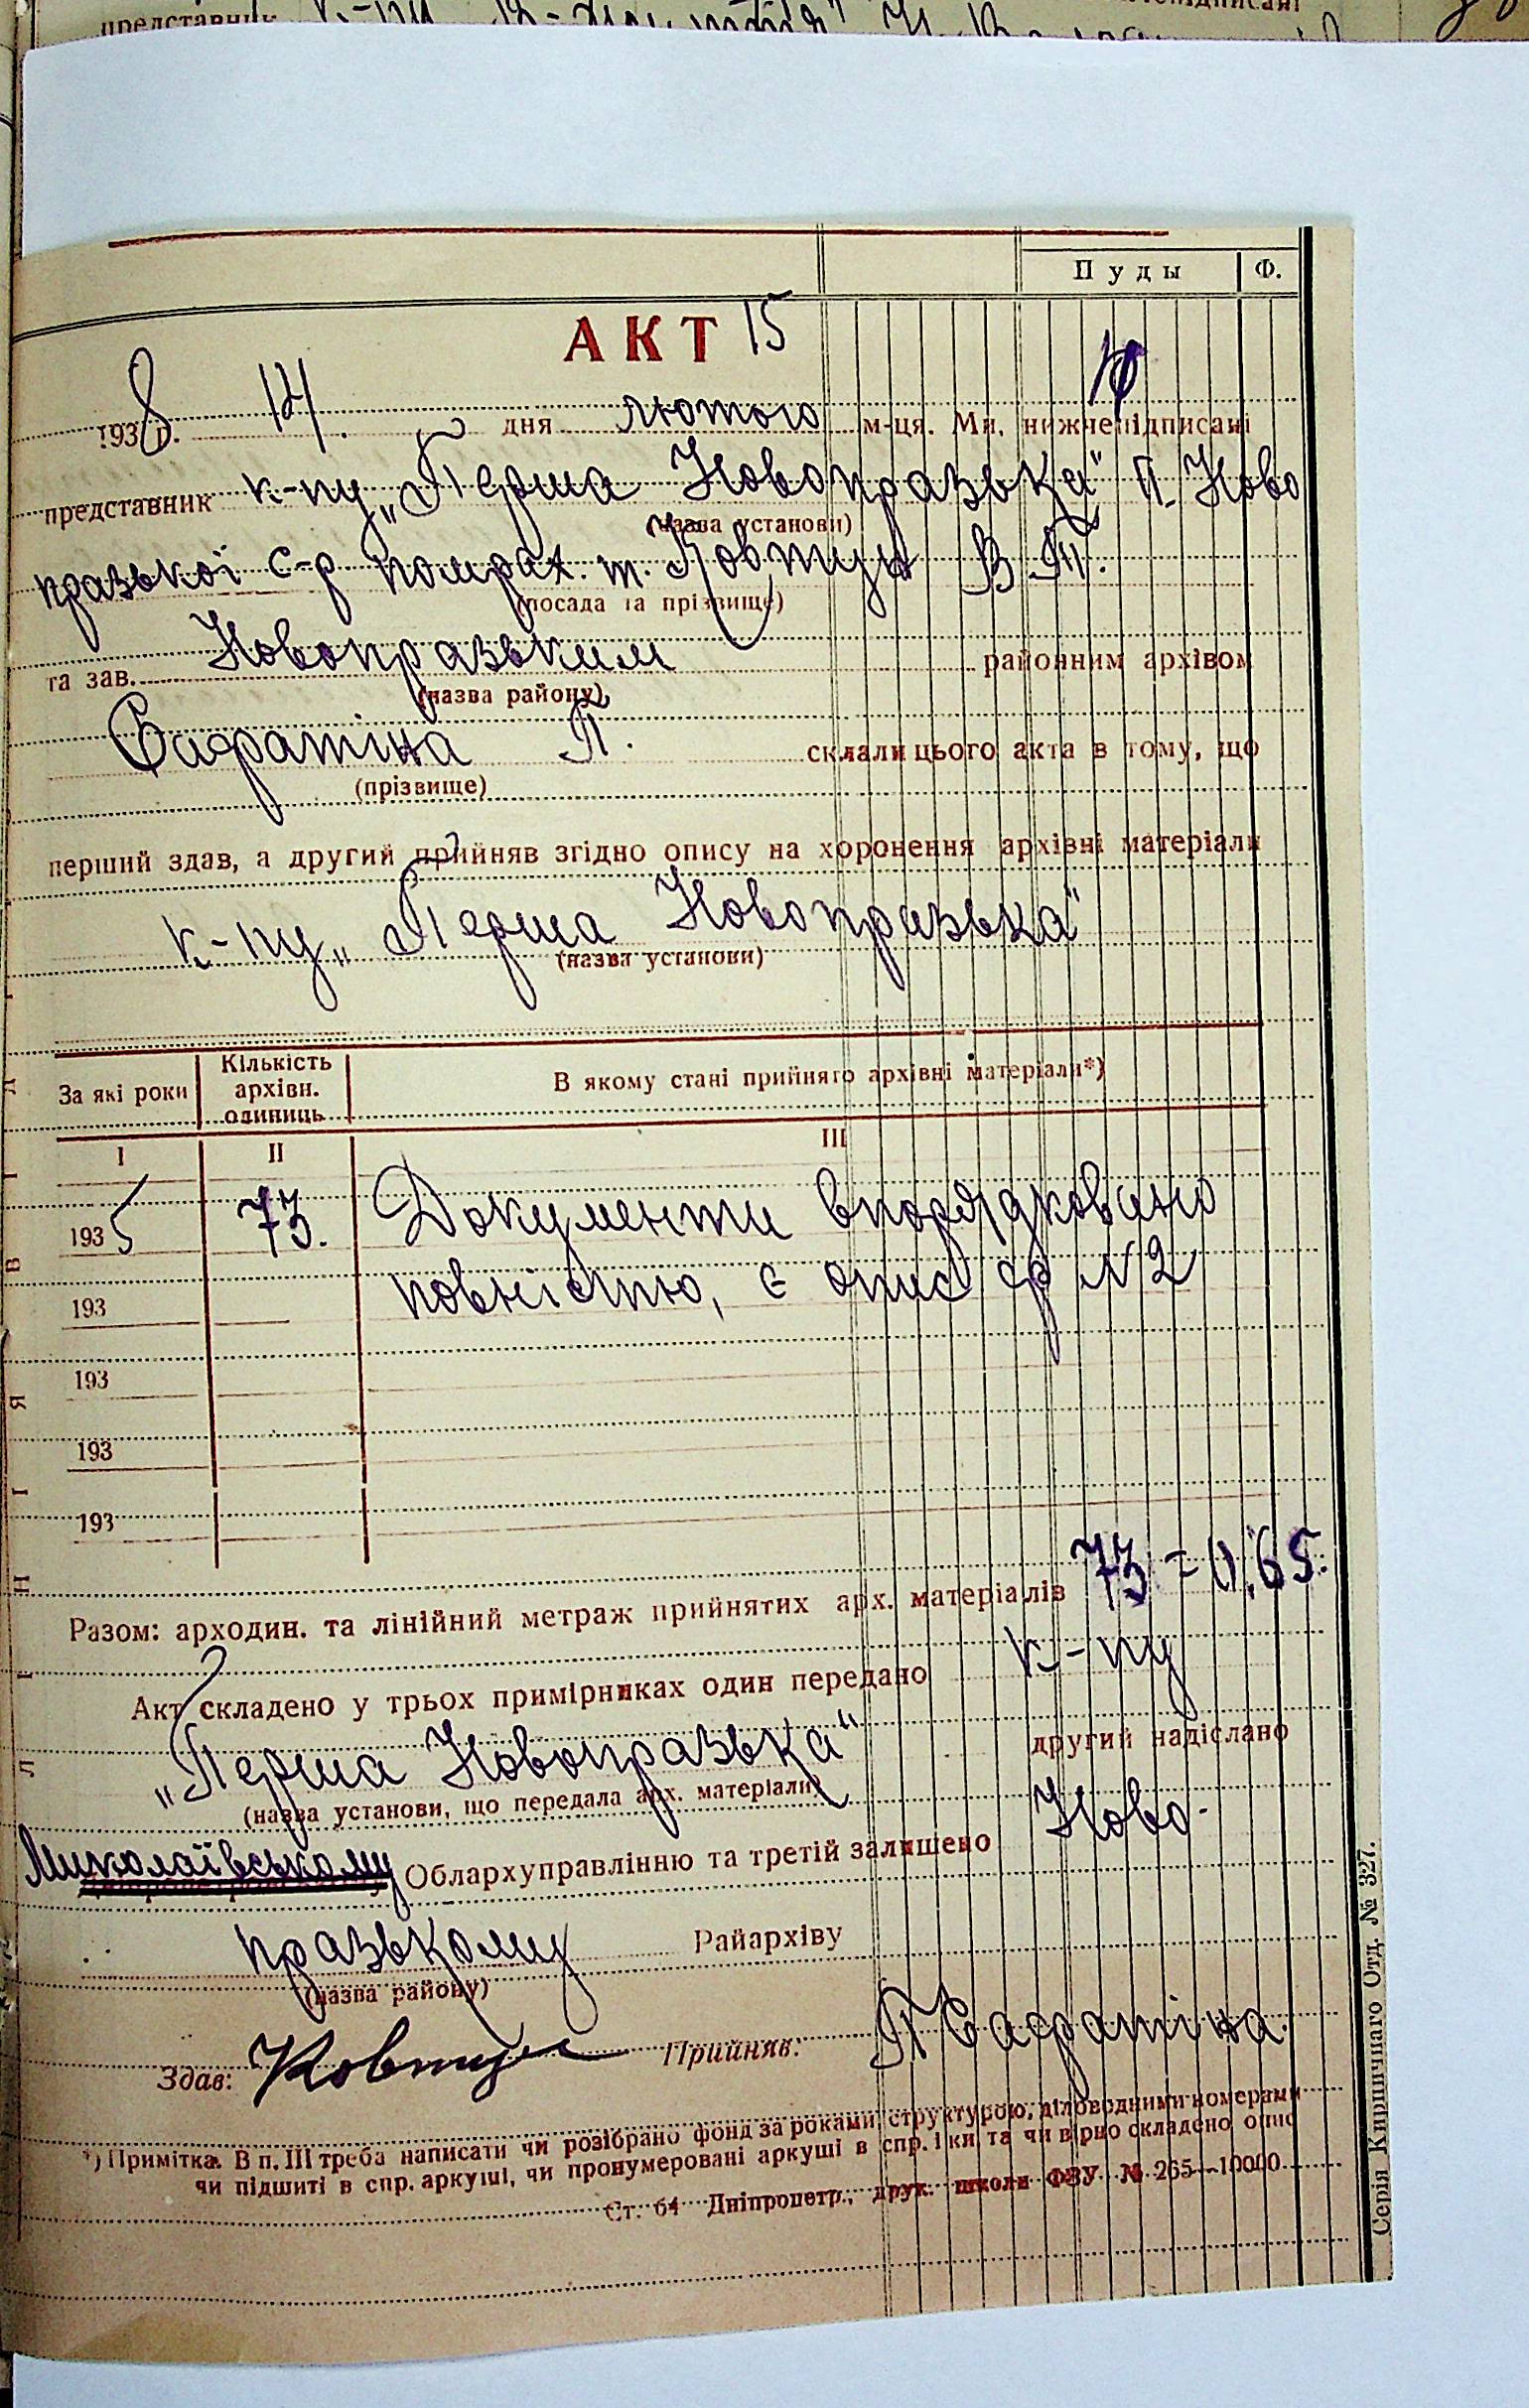 представник к-пу
Пуды Ф.
АКТ 15
1938 р. 14. дня лютого м-ця. Ми, нижчепідписані
представник к-пу „Перша Новопразька" П. Ново
(назва установи)
празької с-р помрах. т. Ковтун В. П.
(посада та прізвище)
та зав. Новопразьким районним архівом
(назва району)
Сафратіна П. склали цього акта в тому, що
(прізвище)
перший здав, а другий прийняв згідно опису на хоронення архівні матеріали
к-пу „Перша Новопразька"
(назва установи)
За які роки Кількість архівн. одиниць В якому стані прийнято архівні матеріали*)
I II III
1935 73. Документи впорядковано
193 повністю, є опис ф N2
193
193
193
Разом: арходин. та лінійний метраж прийнятих арх. матеріалів 73 = 0,65.
Акт складено у трьох примірниках один передано к-пу
„Перша Новопразька" другий надіслано
(назва установи, що передала арх. матеріали)
Миколаївському Облархуправлінню та третій залишено Ново-
празькому Райархіву
(назва району)
Здав: Ковтун Прийняв: П Сафратіна.
*) Примітка. В п. III треба написати чи розібрано фонд за роками, структурою, діловодними номерами
чи підшиті в спр. аркуші, чи пронумеровані аркуші в спр. і ки та чи вірно складено опис
Ст. 64 Дніпропетр., друк. школи ФЗУ № 265—10000
Серія Кирпичнаго Отд. № 327.